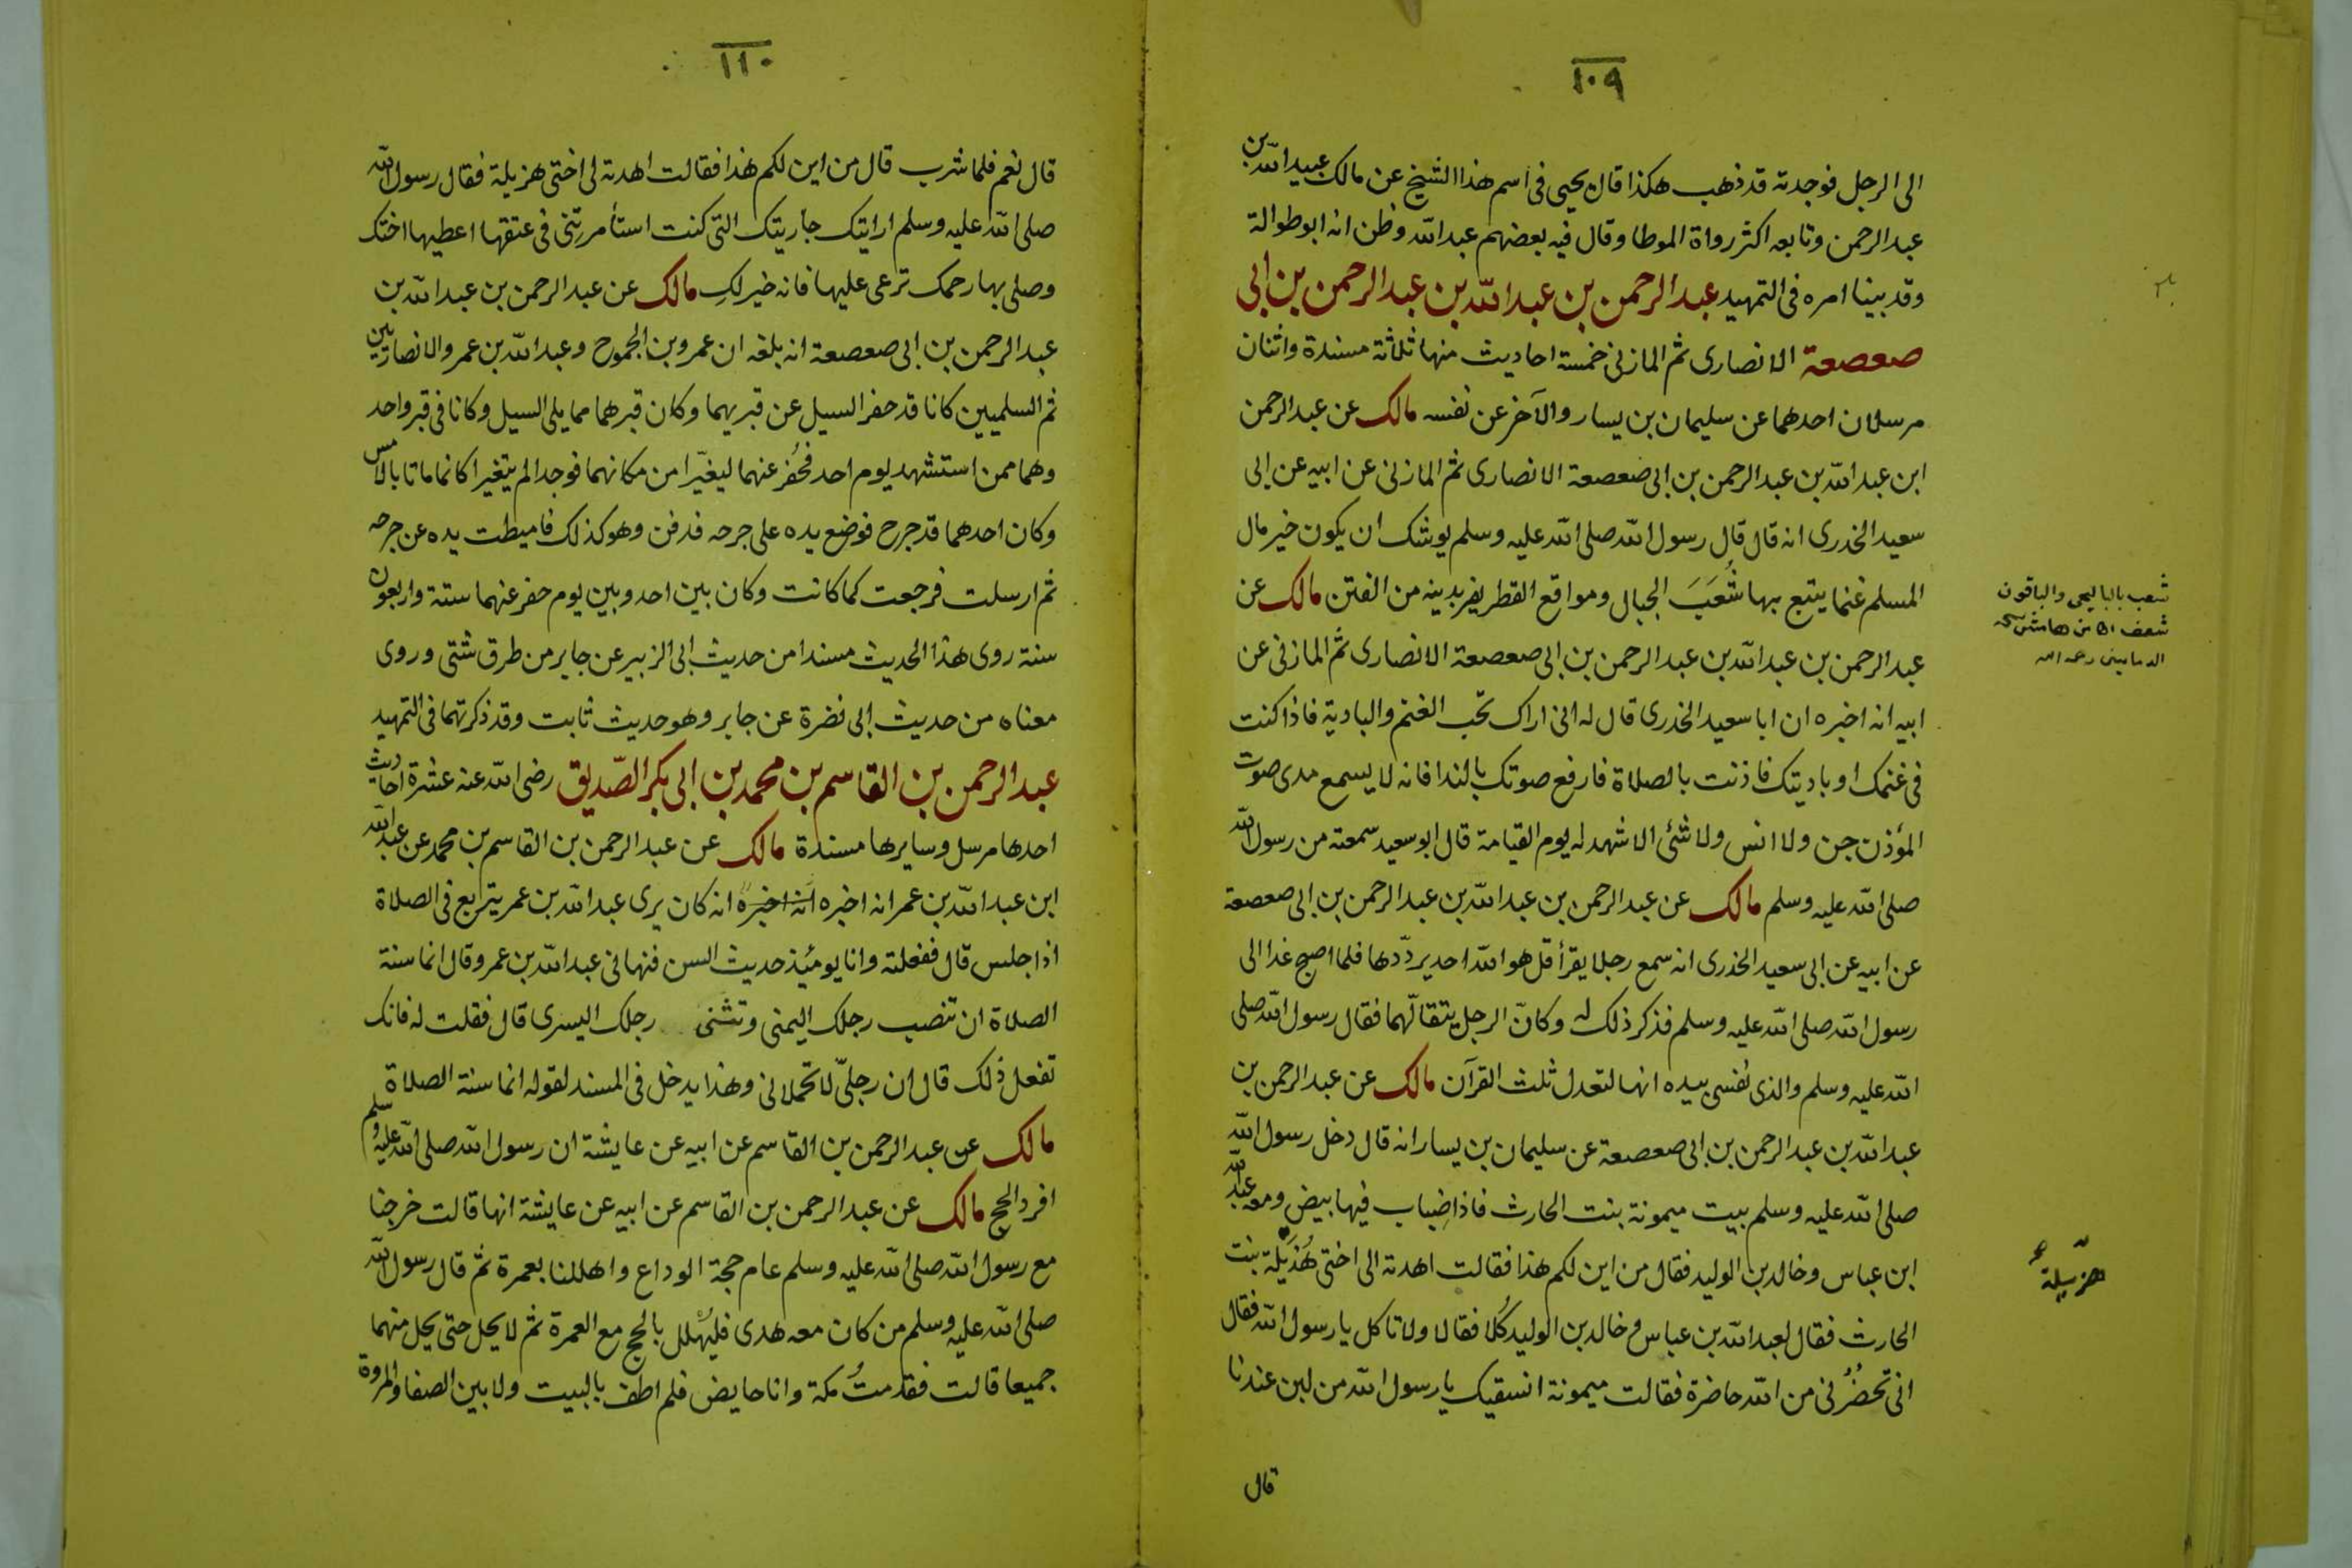 ١٠٩
الى الرجل فوجدته قد ذهب هكذا قال يحيى فى اسم هذا الشيخ عن مالك عبيد الله بن
عبد الرحمن وتابعه اكثر رواة الموطا وقال فيه بعضهم عبد الله وظن انه ابو طوالة
وقد بينا امره فى التمهيد عبد الرحمن بن عبد الله بن عبد الرحمن بن ابى
صعصعة الانصارى ثم المازنى خمسة احاديث منها ثلاثة مسندة واثنان
مرسلان احدهما عن سليمان بن يسار والآخر عن نفسه مالك عن عبد الرحمن
ابن عبد الله بن عبد الرحمن بن ابى صعصعة الانصارى ثم المازنى عن ابيه عن ابى
سعيد الخدرى انه قال قال رسول الله صلى الله عليه وسلم يوشك ان يكون خير مال
المسلم غنما يتبع بها شُعَبَ الجبال ومواقع القطر يفر بدينه من الفتن مالك عن
عبد الرحمن بن عبد الله بن عبد الرحمن بن ابى صعصعة الانصارى ثم المازنى عن
ابيه انه اخبره ان ابا سعيد الخدرى قال له انى اراك تحب الغنم والبادية فاذا كنت
فى غنمك او باديتك فاذنت بالصلاة فارفع صوتك بالندا فانه لا يسمع مدى صوت
المؤذن جن ولا انس ولا شئى الا شهد له يوم القيامة قال ابو سعيد سمعته من رسول الله
صلى الله عليه وسلم مالك عن عبد الرحمن بن عبد الله بن عبد الرحمن بن ابى صعصعة
عن ابيه عن ابى سعيد الخدرى انه سمع رجلا يقرأ قل هو الله احد يردّدها فلما اصبح غدا الى
رسول الله صلى الله عليه وسلم فذكر ذلك له وكانّ الرجل يتقالّهما فقال رسول الله صلى
الله عليه وسلم والذى نفسى بيده انها لتعدل ثلث القرآن مالك عن عبد الرحمن بن
عبد الله بن عبد الرحمن بن ابى صعصعة عن سليمان بن يسار انه قال دخل رسول الله
صلى الله عليه وسلم بيت ميمونة بنت الحارث فاذا ضِباب فيها بيض ومعه عبد الله
ابن عباس وخالد بن الوليد فقال من اين لكم هذا فقالت اهدته الى اختى هُذَيْلة بنت
الحارث فقال لعبد الله بن عباس وخالد بن الوليد كُلا فقالا ولا تاكل يا رسول الله فقال
انى تحضُرُنى من الله حاضرة فقالت ميمونة انسقيك يا رسول الله من لبن عندنا
قال
شعب بالبا ليحيى والباقون
شعف
الدمامينى رحمه الله
هزيلة
١١٠
قال نعم فلما شرب قال من اين لكم هذا فقالت اهدته لى اختى هزيلة فقال رسول الله
صلى الله عليه وسلم ارايتك جاريتك التى كنت استأمرتِنى فى عتقها اعطيها اختك
وصلى بها رحمك ترعى عليها فانه خير لكِ مالك عن عبد الرحمن بن عبد الله بن
عبد الرحمن بن ابى صعصعة انه بلغه ان عمرو بن الجموح وعبد الله بن عمرو الانصاريين
ثم السلميين كانا قد حفر السيل عن قبريهما وكان قبرهما مما يلى السيل وكانا فى قبر واحد
وهما ممن استشهد يوم احد فحُفِر عنهما ليغيّرا من مكانهما فوجدا لم يتغيرا كانما ماتا بالامس
وكان احدهما قد جرح فوضع يده على جرحه فدفن وهو كذلك فاميطت يده عن جرحه
ثم ارسلت فرجعت كما كانت وكان بين احد وبين يوم حفر عنهما ستة واربعون
سنة روى هذا الحديث مسندا من حديث ابى الزبير عن جابر من طرق شتى وروى
معناه من حديث ابى نضرة عن جابر وهو حديث ثابت وقد ذكرتهما فى التمهيد
عبد الرحمن بن القاسم بن محمد بن ابى بكر الصّديق رضى الله عنه عشرة احاديث
احدها مرسل وسايرها مسندة مالك عن عبد الرحمن بن القاسم بن محمد عن عبد الله
ابن عبد الله بن عمر انه اخبره انه اخبره انه كان يرى عبد الله بن عمر يتربع فى الصلاة
اذا جلس قال ففعلته وانا يومئذ حديث السن فنهانى عبد الله بن عمر وقال انما سنة
الصلاة ان تنصب رجلك اليمنى وتثنى رجلك اليسرى قال فقلت له فانك
تفعل ذلك قال ان رجلىّ لا تحملانى وهذا يدخل فى المسند لقوله انما سنة الصلاة
مالك عن عبد الرحمن بن القاسم عن ابيه عن عايشة ان رسول الله صلى الله عليه وسلم
افرد الحج مالك عن عبد الرحمن بن القاسم عن ابيه عن عايشة انها قالت خرجنا
مع رسول الله صلى الله عليه وسلم عام حجة الوداع واهللنا بعمرة ثم قال رسول الله
صلى الله عليه وسلم من كان معه هدى فليُهْلل بالحج مع العمرة ثم لا يحل حتى يحل منهما
جميعا قالت فقدمتُ مكة وانا حايض فلم اطف بالبيت ولا بين الصفا والمروة